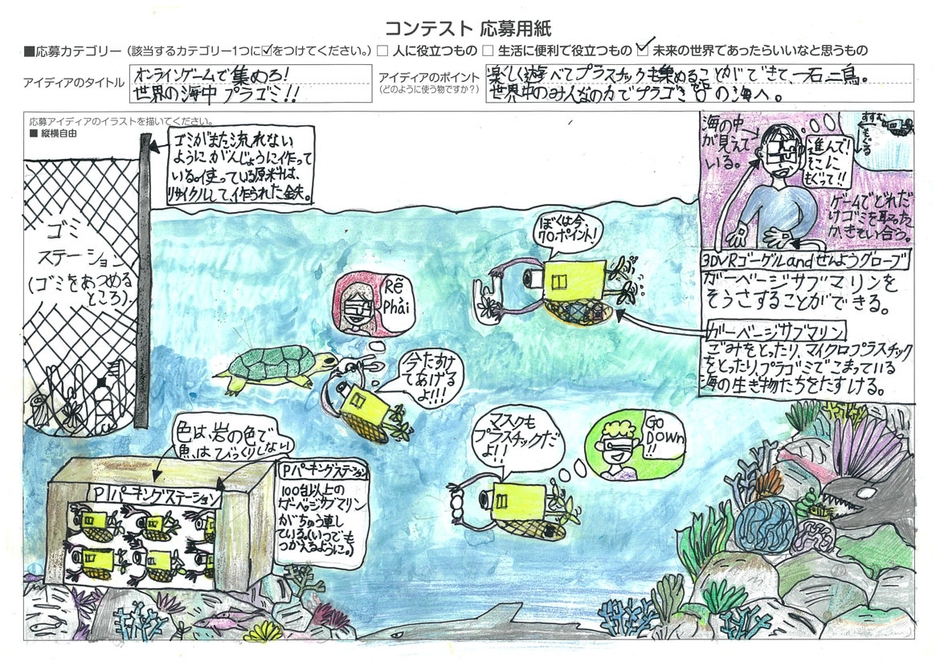 コンテスト 応募用紙
■応募カテゴリー（該当するカテゴリー1つに☑をつけてください。）□ 人に役立つもの □ 生活に便利で役立つもの ☑ 未来の世界であったらいいなと思うもの
アイディアのタイトル
オンラインゲームで集めろ!
世界の海中プラゴミ!!
アイディアのポイント
（どのように使う物ですか？）
楽しく遊べてプラスチックも集めることができて、一石二鳥。
世界中のみんなの力でプラゴミ0の海へ。
応募アイディアのイラストを描いてください。
■ 縦横自由
ゴミがまた流れない
ようにがんじょうに作って
いる。使っている原料は、
リサイクルして作られた金糸。
ゴミ
ステーション
(ゴミをあつめる
ところ)
海の中
が見えて
いる。
進んで!
そこに
もぐって!!
すすむ
もぐる
ゲームでどれだ
けゴミを取った
かきそい合う。
3DVRゴーグルandせんようグローブ
ガーベージサブマリンを
そうさすることができる。
ガーベージサブマリン
ごみをとったり、マイクロプラスチック
をとったり、プラゴミでこまっている
海の生き物たちをたすける。
ぼくは今、
70ポイント!
Rẽ
Phải
今たすけ
てあげる
よ!!!
マスクも
プラスチックだ
よ!!
GO
DOWN
!!
色は、岩の色で
魚はびっくりしない
Pパーキングステーション
Pパーキングステーション
100台以上の
ガーベージサブマリン
がちゅう車し
ている(いつでも
つかえるように。)